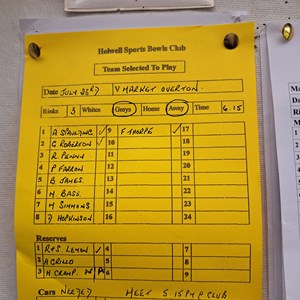 Holwell Sports Bowls Club
Team Selected To Play
Date JULY 23rd V MARKET OVERTON.
Rinks 3 Whites Greys Home Away Time 6.15
1 A SPAULDING ✓ 9 F THORPE ✓ 17
2 G ROBERTON ✓ 10 18
3 R PENNY 11 19
4 P FARROW 12 20
5 B JAMES. 13 21
6 M. BASS. 14 22
7 M SIMMONS 15 23
8 J HOPKINSON 16 24
Reserves
1 4 7
2 5 8
3 6 9
Cars MEET 5 15PM @ CLUB